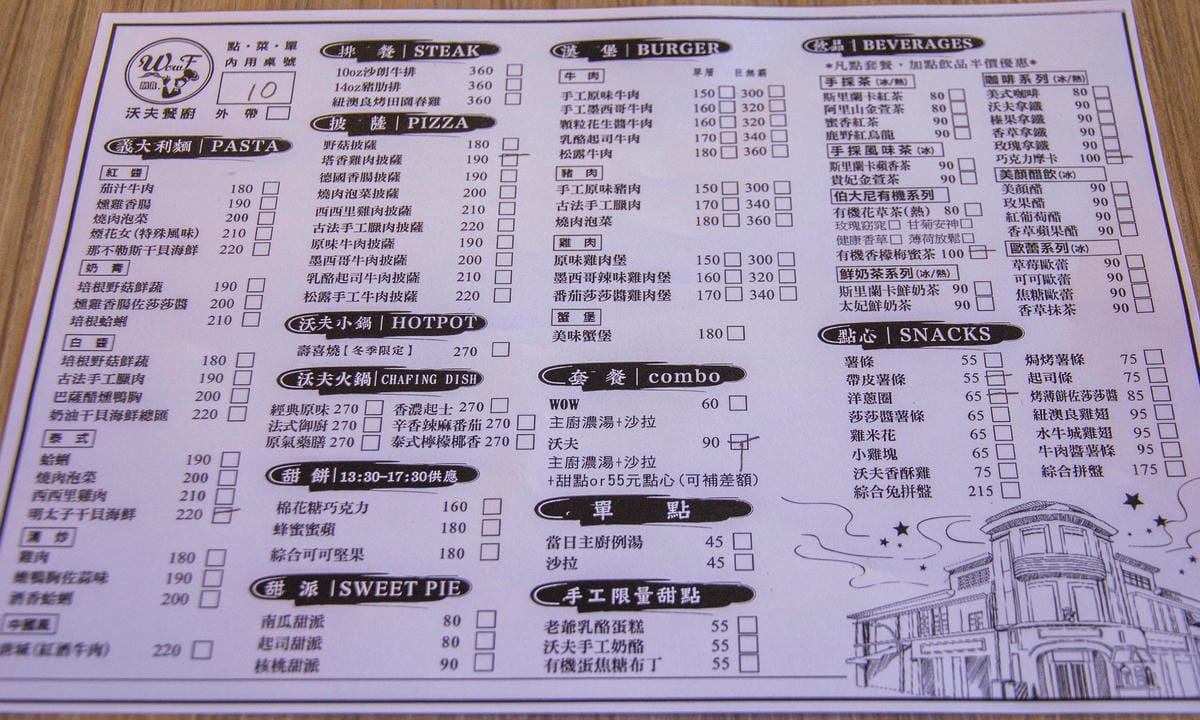 WowF
沃夫餐廚
點·菜·單
內用桌號
10
外 帶
義大利麵 | PASTA
紅 醬
茄汁牛肉 180
燻雞香腸 190
燒肉泡菜 200
煙花女(特殊風味) 210
那不勒斯干貝海鮮 220
奶 青
培根野菇鮮蔬 190
燻雞香腸佐莎莎醬 200
培根蛤蜊 210
白 醬
培根野菇鮮蔬 180
古法手工臘肉 190
巴薩醋燻鴨胸 200
奶油干貝海鮮總匯 220
泰 式
蛤蜊 190
燒肉泡菜 200
西西里雞肉 210
明太子干貝海鮮 220
清 炒
雞肉 180
燻鴨胸佐蒜味 190
酒香蛤蜊 200
中國風
(紅酒牛肉) 220
排 餐 | STEAK
10oz沙朗牛排 360
14oz豬肋排 360
紐澳良烤田園春雞 360
披 薩 | PIZZA
野菇披薩 180
塔香雞肉披薩 190
德國香腸披薩 190
燒肉泡菜披薩 200
西西里雞肉披薩 210
古法手工臘肉披薩 220
原味牛肉披薩 190
墨西哥牛肉披薩 200
乳酪起司牛肉披薩 210
松露手工牛肉披薩 220
沃夫小鍋 | HOTPOT
壽喜燒【冬季限定】 270
沃夫火鍋 | CHAFING DISH
經典原味 270 香濃起士 270
法式御廚 270 辛香辣麻番茄 270
原氣藥膳 270 泰式檸檬椰香 270
甜 餅 | 13:30-17:30供應
棉花糖巧克力 160
蜂蜜蜜蘋 180
綜合可可堅果 180
甜 派 | SWEET PIE
南瓜甜派 80
起司甜派 80
核桃甜派 90
漢 堡 | BURGER
牛 肉 單層 巨無霸
手工原味牛肉 150 300
手工墨西哥牛肉 160 320
顆粒花生醬牛肉 160 320
乳酪起司牛肉 170 340
松露牛肉 180 360
豬 肉
手工原味豬肉 150 300
古法手工臘肉 170 340
燒肉泡菜 180 360
雞 肉
原味雞肉堡 150 300
墨西哥辣味雞肉堡 160 320
番茄莎莎醬雞肉堡 170 340
蟹 堡
美味蟹堡 180
套 餐 | combo
WOW 60
主廚濃湯+沙拉
沃夫 90
主廚濃湯+沙拉
+甜點or55元點心(可補差額)
單 點
當日主廚例湯 45
沙拉 45
手工限量甜點
老爺乳酪蛋糕 55
沃夫手工奶酪 55
有機蛋焦糖布丁 55
飲品 | BEVERAGES
*凡點套餐,加點飲品半價優惠*
手採茶(冰/熱)
斯里蘭卡紅茶 80
阿里山金萱茶 80
蜜香紅茶 90
鹿野紅烏龍 90
手採風味茶(冰)
斯里蘭卡蘋香茶 90
貴妃金萱茶 90
伯大尼有機系列
有機花草茶(熱) 80
玫瑰窈窕 甘菊安神
健康香草 薄荷放鬆
有機香檬梅蜜茶 100
鮮奶茶系列(冰/熱)
斯里蘭卡鮮奶茶 90
太妃鮮奶茶 90
咖啡系列(冰/熱)
美式咖啡 80
沃夫拿鐵 90
榛果拿鐵 90
香草拿鐵 90
玫瑰拿鐵 90
巧克力摩卡 100
美顏醋飲(冰)
美顏醋 90
玫果醋 90
紅葡萄醋 90
香草蘋果醋 90
歐蕾系列(冰)
草莓歐蕾 90
可可歐蕾 90
焦糖歐蕾 90
香草抹茶 90
點心 | SNACKS
薯條 55
帶皮薯條 55
洋蔥圈 65
莎莎醬薯條 65
雞米花 65
小雞塊 65
沃夫香酥雞 75
綜合兔拼盤 215
焗烤薯條 75
起司條 75
烤薄餅佐莎莎醬 85
紐澳良雞翅 95
水牛城雞翅 95
牛肉醬薯條 95
綜合拼盤 175